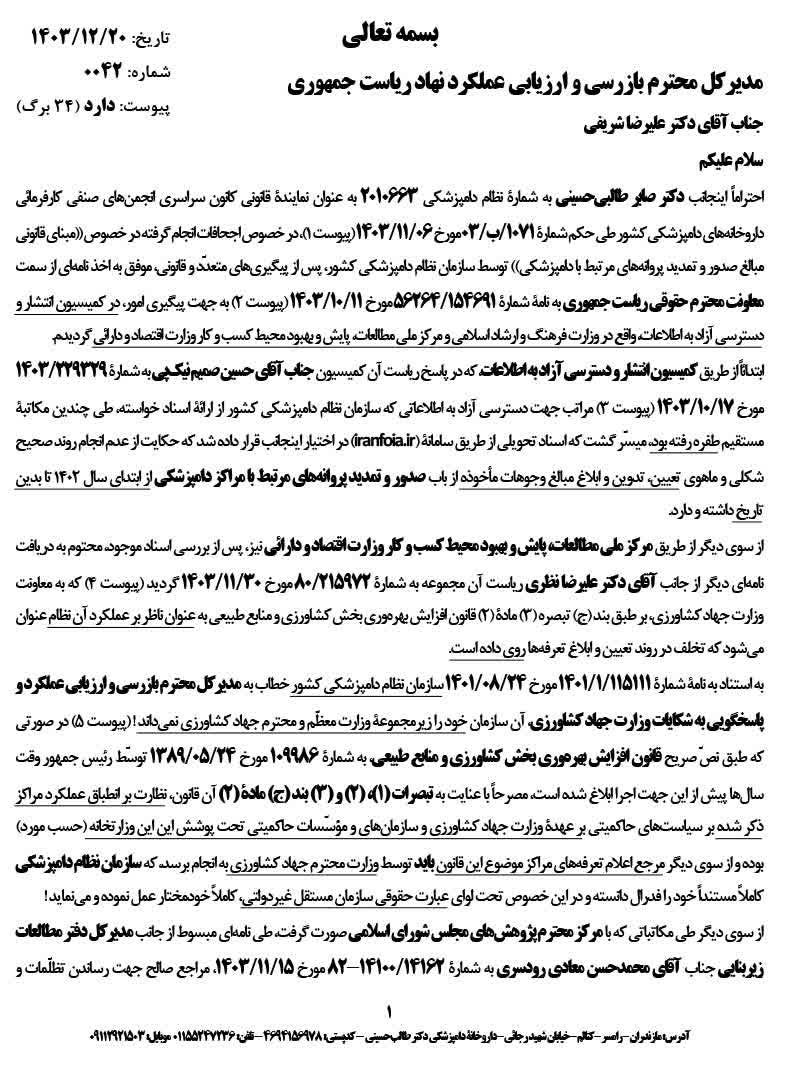 بسمه تعالی
تاریخ: ۱۴۰۳/۱۲/۲۰
شماره: ۰۰۴۲
پیوست: دارد (۳۴ برگ)
مدیرکل محترم بازرسی و ارزیابی عملکرد نهاد ریاست جمهوری
جناب آقای دکتر علیرضا شریفی
سلام علیکم
احتراماً اینجانب دکتر صابر طالبی‌حسینی به شمارهٔ نظام دامپزشکی ۲۰۱۰۶۶۳ به عنوان نمایندهٔ قانونی کانون سراسری انجمن‌های صنفی کارفرمائی
داروخانه‌های دامپزشکی کشور طی حکم شمارهٔ ۱۰۷۱/ب/۰۳ مورخ ۱۴۰۳/۱۱/۰۶ (پیوست ۱)، در خصوص اجحافات انجام گرفته در خصوص ((مبنای قانونی
مبالغ صدور و تمدید پروانه‌های مرتبط با دامپزشکی)) توسط سازمان نظام دامپزشکی کشور، پس از پیگیری‌های متعدّد و قانونی، موفق به اخذ نامه‌ای از سمت
معاونت محترم حقوقی ریاست جمهوری به نامهٔ شمارهٔ ۵۶۲۶۴/۱۵۴۶۹۱ مورخ ۱۴۰۳/۱۰/۱۱ (پیوست ۲) به جهت پیگیری امور، در کمیسیون انتشار و
دسترسی آزاد به اطلاعات، واقع در وزارت فرهنگ و ارشاد اسلامی و مرکز ملی مطالعات، پایش و بهبود محیط کسب و کار وزارت اقتصاد و دارائی گردیدم.
ابتدائاً از طریق کمیسیون انتشار و دسترسی آزاد به اطلاعات، که در پاسخ ریاست آن کمیسیون جناب آقای حسین صمیم نیک‌پی به شمارهٔ ۱۴۰۳/۲۲۹۳۲۹
مورخ ۱۴۰۳/۱۰/۱۷ (پیوست ۳) مراتب جهت دسترسی آزاد به اطلاعاتی که سازمان نظام دامپزشکی کشور از ارائهٔ اسناد خواسته، طی چندین مکاتبهٔ
مستقیم طفره رفته بود، میسّر گشت که اسناد تحویلی از طریق سامانهٔ (iranfoia.ir) در اختیار اینجانب قرار داده شد که حکایت از عدم انجام روند صحیح
شکلی و ماهوی تعیین، تدوین و ابلاغ مبالغ وجوهات مأخوذه از باب صدور و تمدید پروانه‌های مرتبط با مراکز دامپزشکی از ابتدای سال ۱۴۰۲ تا بدین
تاریخ داشته و دارد.
از سوی دیگر از طریق مرکز ملی مطالعات، پایش و بهبود محیط کسب و کار وزارت اقتصاد و دارائی نیز، پس از بررسی اسناد موجود، محتوم به دریافت
نامه‌ای دیگر از جانب آقای دکتر علیرضا نظری ریاست آن مجموعه به شمارهٔ ۸۰/۲۱۵۹۷۲ مورخ ۱۴۰۳/۱۱/۳۰ گردید (پیوست ۴) که به معاونت
وزارت جهاد کشاورزی، بر طبق بند (ج) تبصره (۳) مادهٔ (۲) قانون افزایش بهره‌وری بخش کشاورزی و منابع طبیعی به عنوان ناظر بر عملکرد آن نظام عنوان
می‌شود که تخلف در روند تعیین و ابلاغ تعرفه‌ها روی داده است.
به استناد به نامهٔ شمارهٔ ۱۴۰۱/۱/۱۱۵۱۱۱ مورخ ۱۴۰۱/۰۸/۲۴ سازمان نظام دامپزشکی کشور خطاب به مدیرکل محترم بازرسی و ارزیابی عملکرد و
پاسخگویی به شکایات وزارت جهاد کشاورزی، آن سازمان خود را زیرمجموعهٔ وزارت معظّم و محترم جهاد کشاورزی نمی‌داند! (پیوست ۵) در صورتی
که طبق نصّ صریح قانون افزایش بهره‌وری بخش کشاورزی و منابع طبیعی، به شمارهٔ ۱۰۹۹۸۶ مورخ ۱۳۸۹/۰۵/۲۴ توسّط رئیس جمهور وقت
سال‌ها پیش از این جهت اجرا ابلاغ شده است، مصرحاً با عنایت به تبصرات (۱)، (۲) و (۳) بند (ج) مادهٔ (۲) آن قانون، نظارت بر انطباق عملکرد مراکز
ذکر شده بر سیاست‌های حاکمیتی بر عهدهٔ وزارت جهاد کشاورزی و سازمان‌های و مؤسّسات حاکمیتی تحت پوشش این این وزارتخانه (حسب مورد)
بوده و از سوی دیگر مرجع اعلام تعرفه‌های مراکز موضوع این قانون باید توسط وزارت محترم جهاد کشاورزی به انجام برسد، که سازمان نظام دامپزشکی
کاملاً مستنداً خود را فدرال دانسته و در این خصوص تحت لوای عبارت حقوقی سازمان مستقل غیردولتی، کاملاً خودمختار عمل نموده و می‌نماید!
از سوی دیگر طی مکاتباتی که با مرکز محترم پژوهش‌های مجلس شورای اسلامی صورت گرفت، طی نامه‌ای مبسوط از جانب مدیرکل دفتر مطالعات
زیربنایی جناب آقای محمدحسن معادی رودسری به شمارهٔ ۱۴۱۰۰/۱۴۱۶۲-۸۲ مورخ ۱۴۰۳/۱۱/۱۵، مراجع صالح جهت رساندن تظلّمات و
۱
آدرس: مازندران – رامسر – کتالم – خیابان شهید رجائی – داروخانهٔ دامپزشکی دکتر طالب‌حسینی – کدپستی: ۴۶۹۴۱۵۶۹۷۸ – تلفن: ۰۱۱۵۵۲۴۷۲۳۶ موبایل: ۰۹۱۱۲۹۲۱۵۰۳